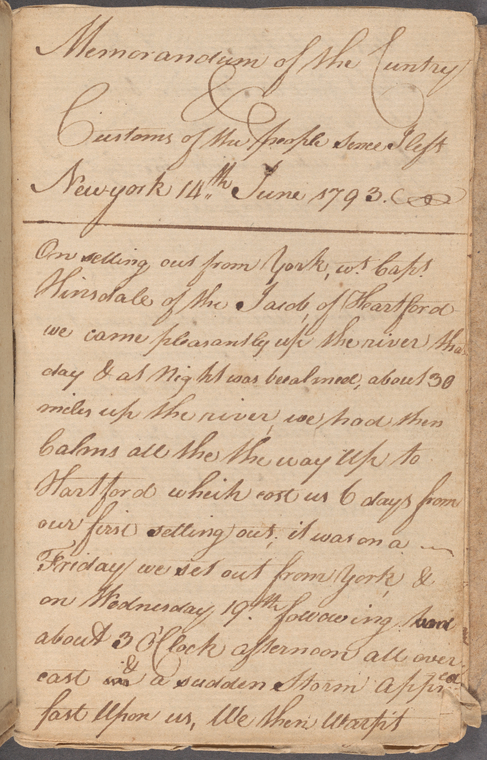 Memorandum of the Cuntry
&
Customs of the people sence I left
New york 14,,th June 1793.
On setting out from York, wt. Capt
Hinsdale of the Jacob of Hartford
we came pleasantly up the river tha
day & at Night was becalmed, about 30
miles up the river, we had then
Calms all the the way Up to
Hartford wheih cost us 6 days from
our first setting out; it was on a
Friday we set out from York, &
on Wednesday 19th. following
about 3 O'Clock afternoon all over
cast & a sudden Storm
fast Upon us, We then Warpt